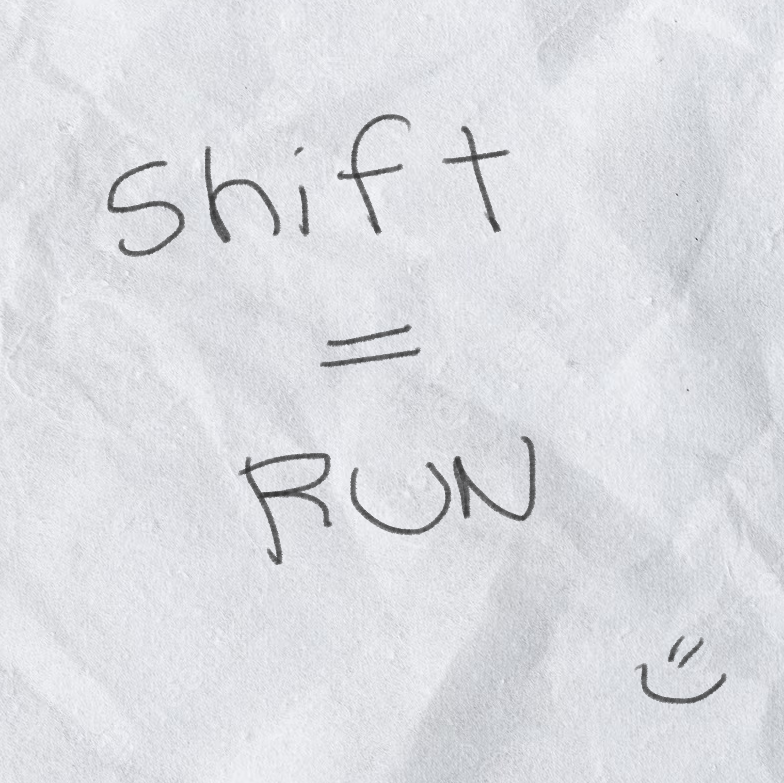 Shift
=
RUN